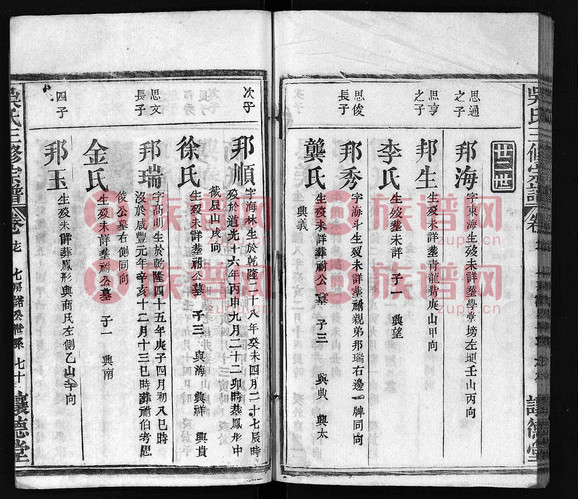 吳氏三修宗譜
廿二世
思通之子
邦海
字東海生歿未詳葬學堂塝左邊壬山丙向
思亨之子
邦生
生歿未詳葬青龍
庚山甲向
李氏
生歿未詳 子一 興望
思俊長子
邦秀
字海斗生歿未詳葬祔親弟邦瑞右邊一牌同向
龔氏
生歿未詳葬祔公墓 子三 興典 興太
興義
次子
邦順
字海林生於乾隆二十八年癸未四月二十七辰時
歿於道光十六年丙申九月二十二卯時葬鳳形中
截艮山
向
徐氏
生歿未詳葬祔公墓 子三 興海 興祥 興貴
思文長子
邦瑞
字高明生於乾隆四十五年庚子四月初八巳時
歿於咸豐元年辛亥十二月十三巳時葬祔伯考思
俊公墓右側同向
金氏
生歿未詳葬祔公墓 子一 興南
四子
邦玉
生歿未詳葬鳳形興商氏左側乙山辛向
吳氏三修宗譜
七房
世系
七十
讓德堂